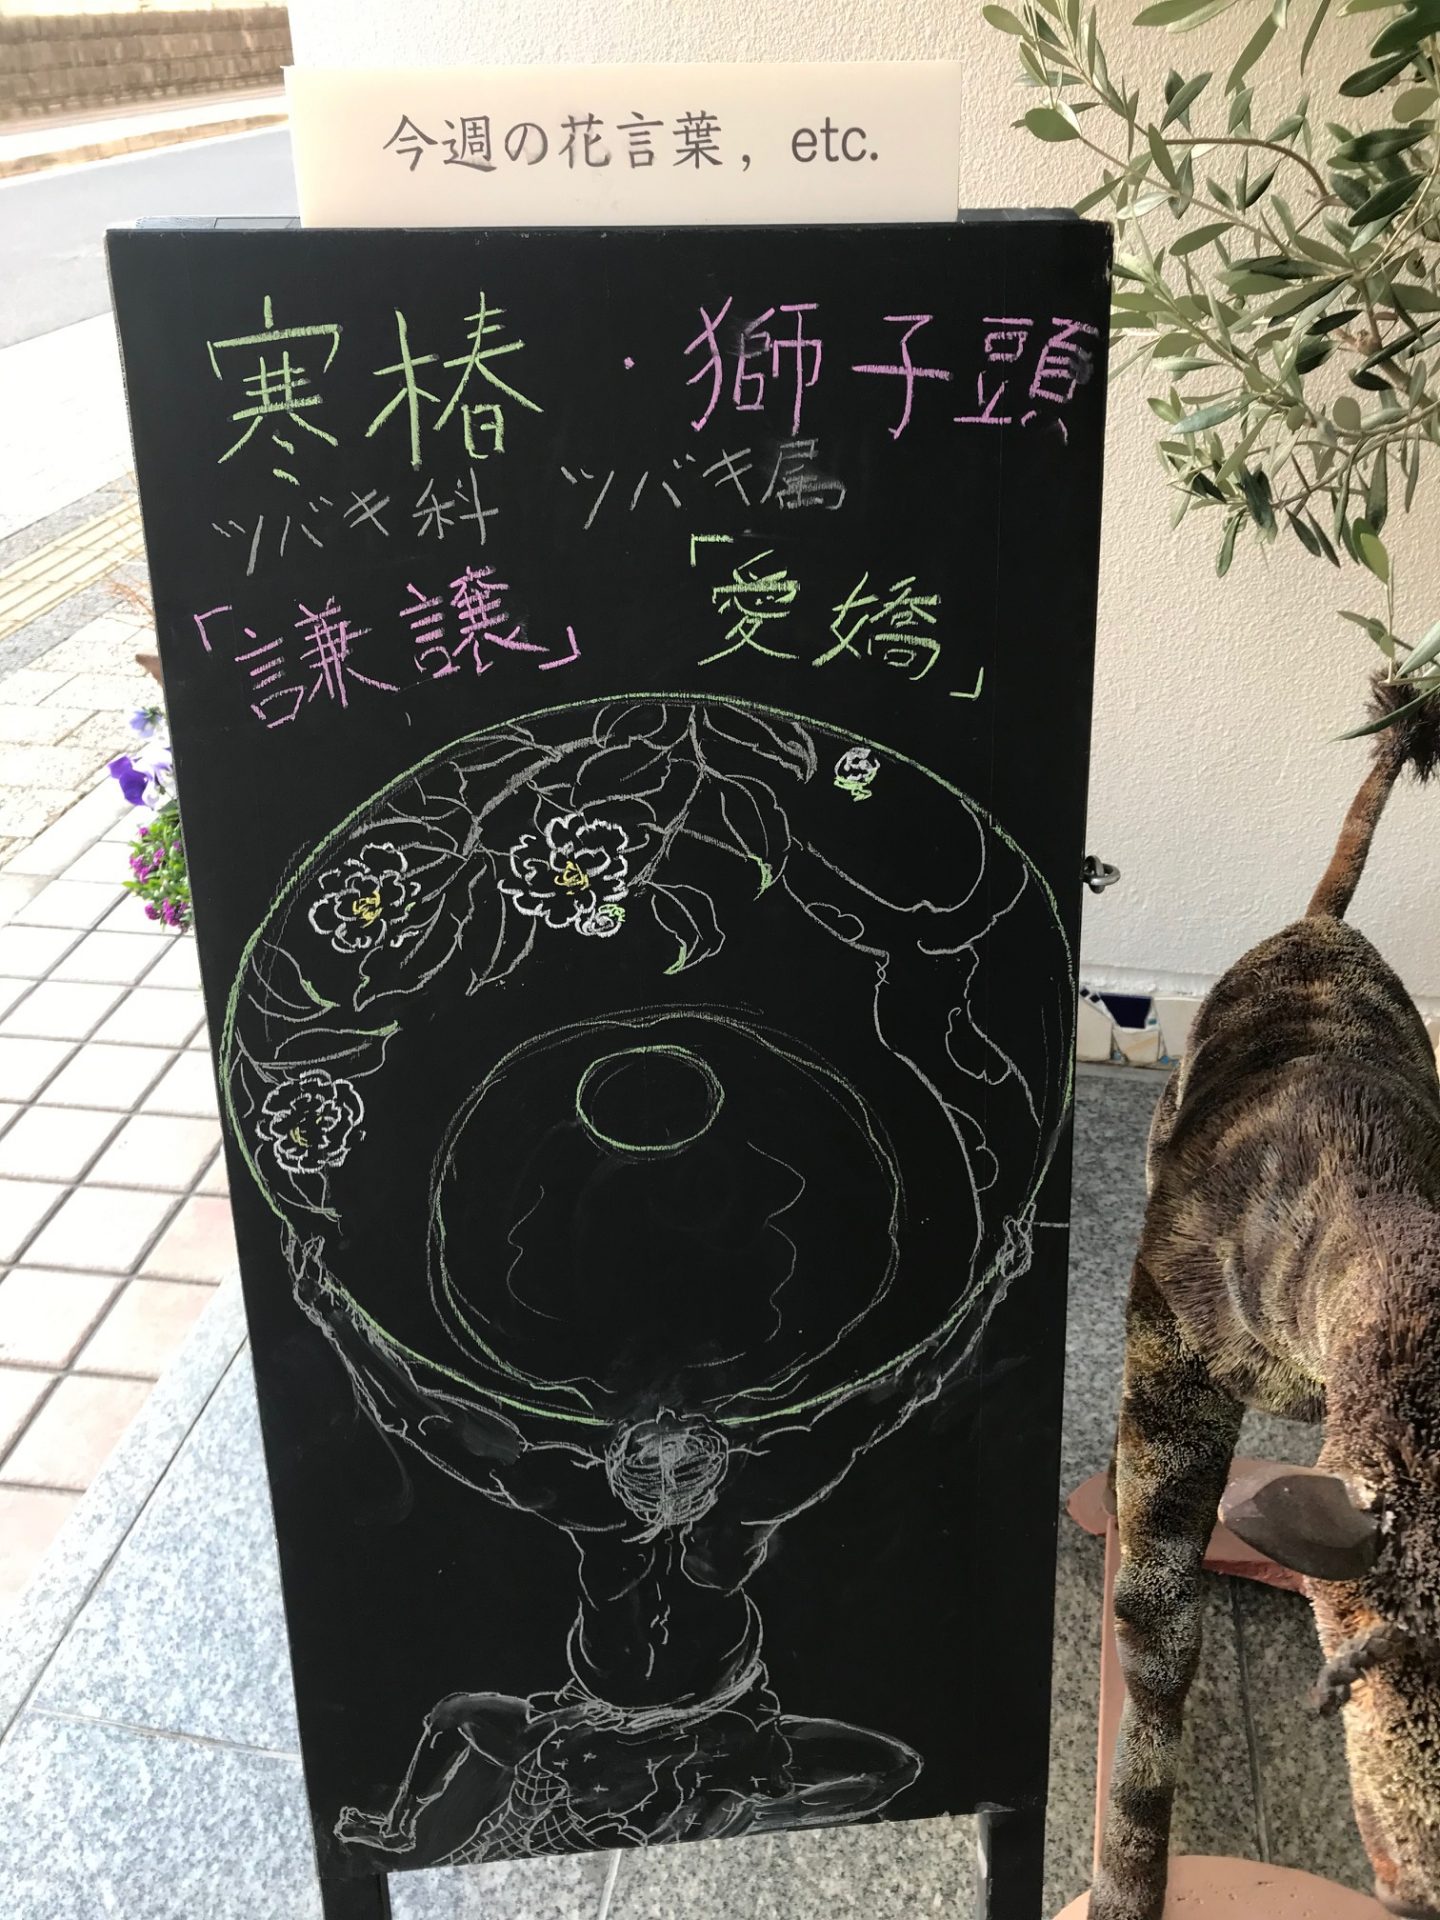 今週の花言葉, etc.
寒椿・獅子頭
ツバキ科 ツバキ属
「謙譲」 「愛嬌」